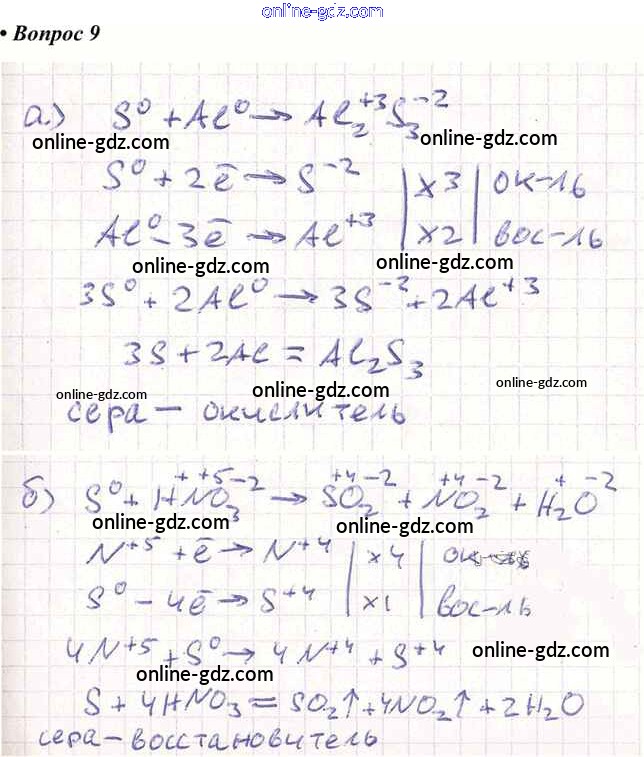 online-gdz.com
• Вопрос 9
а.) S⁰ + Al⁰ → Al₂⁺³S₃⁻²
online-gdz.com online-gdz.com
S⁰ + 2ē → S⁻² | ×3 | ок-ль
Al⁰ - 3ē → Al⁺³ | ×2 | вос-ль
online-gdz.com online-gdz.com
3S⁰ + 2Al⁰ → 3S⁻² + 2Al⁺³
3S + 2Al = Al₂S₃
online-gdz.com online-gdz.com online-gdz.com
сера – окислитель
б) S⁰ + H⁺N⁺⁵O₃⁻² → S⁺⁴O₂⁻² + N⁺⁴O₂⁻² + H₂⁺O⁻²
online-gdz.com online-gdz.com
N⁺⁵ + ē → N⁺⁴ | ×4 | ок-ль
S⁰ - 4ē → S⁺⁴ | ×1 | вос-ль
4N⁺⁵ + S⁰ → 4N⁺⁴ + S⁺⁴ online-gdz.com
online-gdz.com
S + 4HNO₃ = SO₂↑ + 4NO₂↑ + 2H₂O
сера – восстановитель